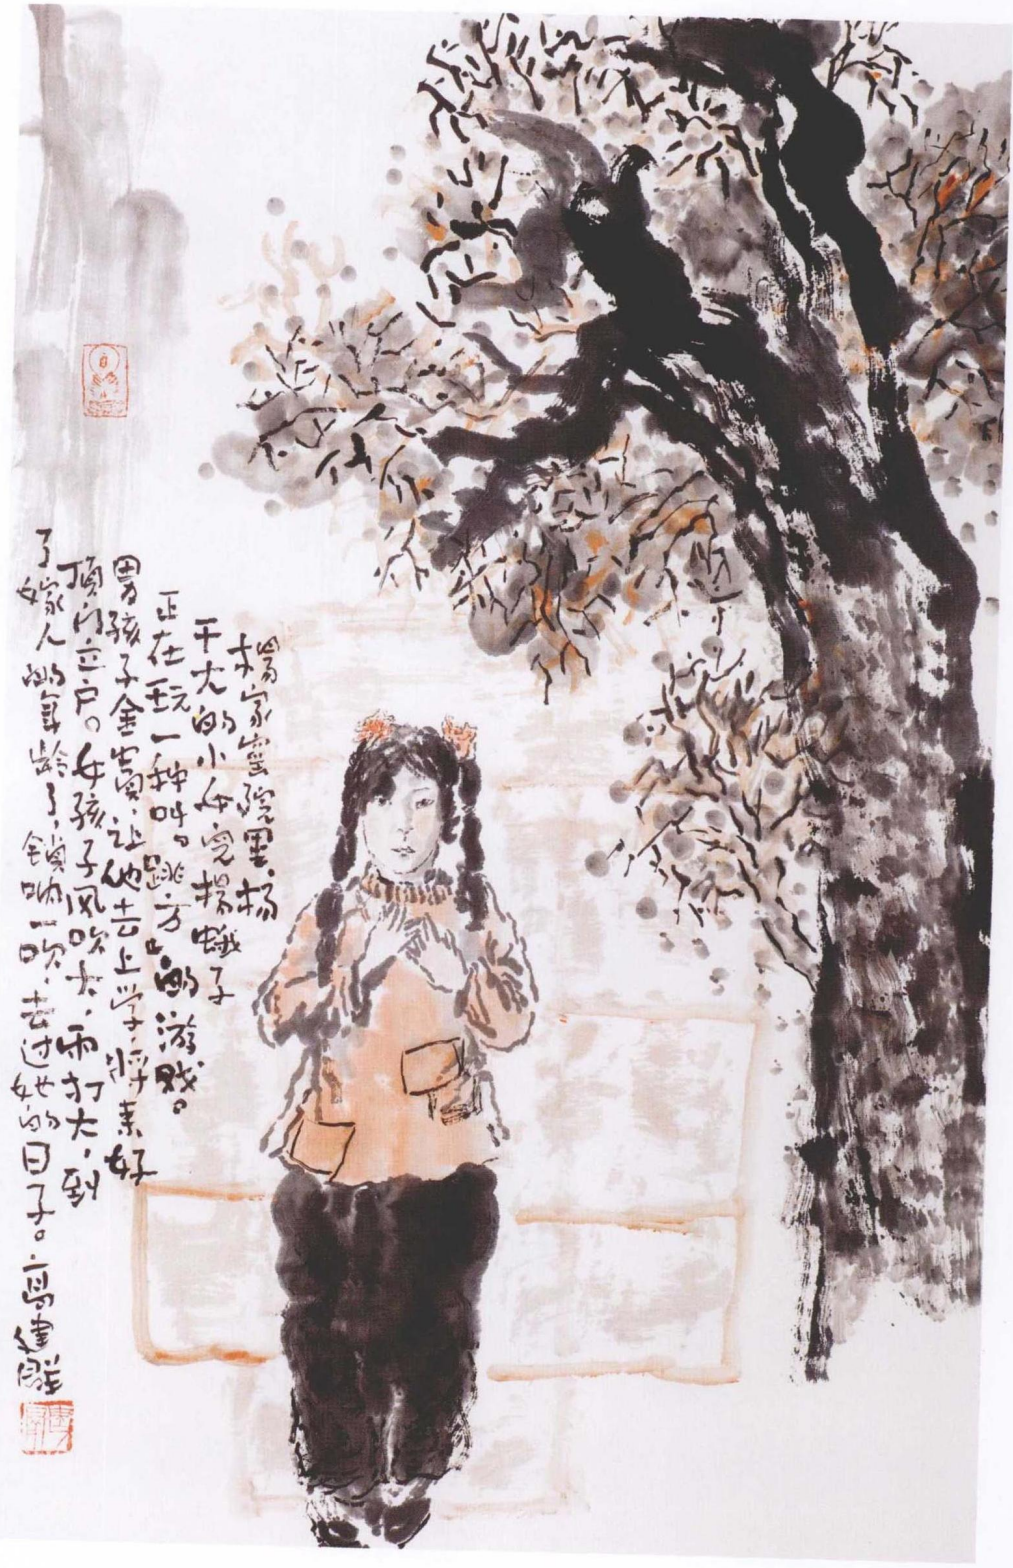 杨家窑院里，杨
干大的小女儿杨蛾子
正在玩一种叫“跳方”的游戏。
男孩子金贵，让他去上学，将来好
顶门立户。女孩子风吹大，雨打大，到
了嫁人的年龄了，锁呐一吹，去过她的日子。高建群